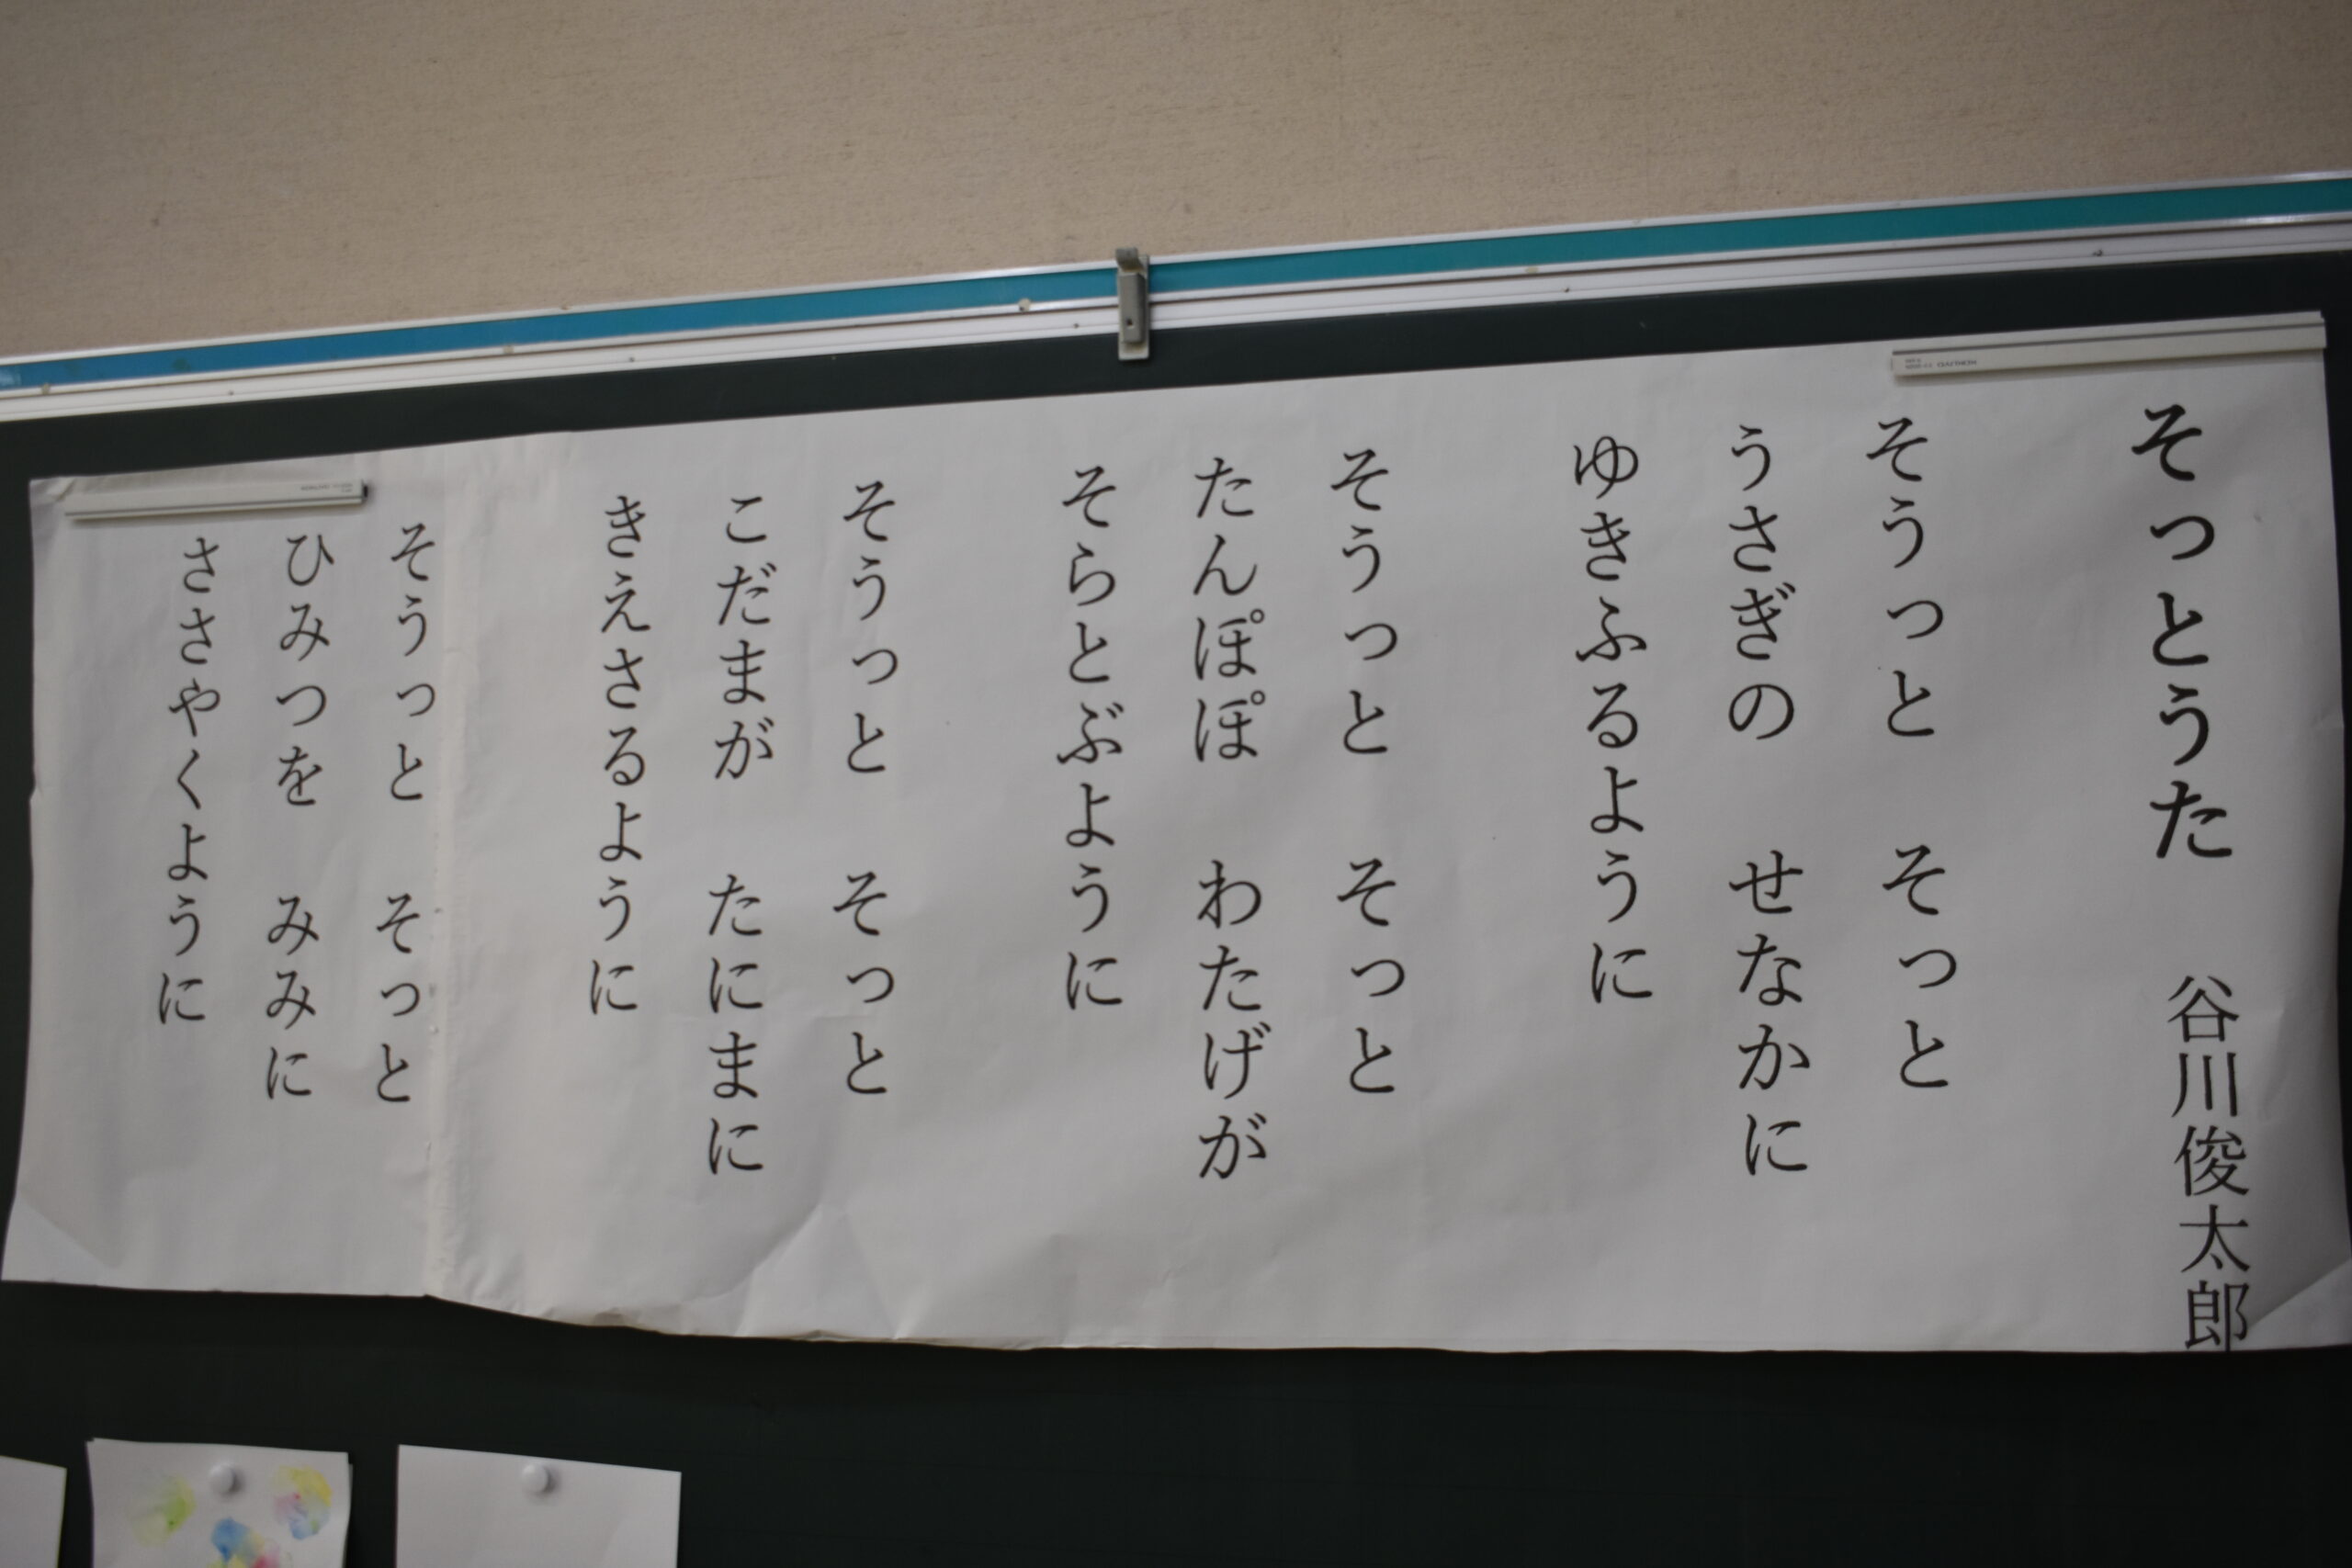 そっとうた　谷川俊太郎
そうっと　そっと
うさぎの　せなかに
ゆきふるように
そうっと　そっと
たんぽぽ　わたげが
そらとぶように
そうっと　そっと
こだまが　たにまに
きえさるように
そうっと　そっと
ひみつを　みみに
ささやくように